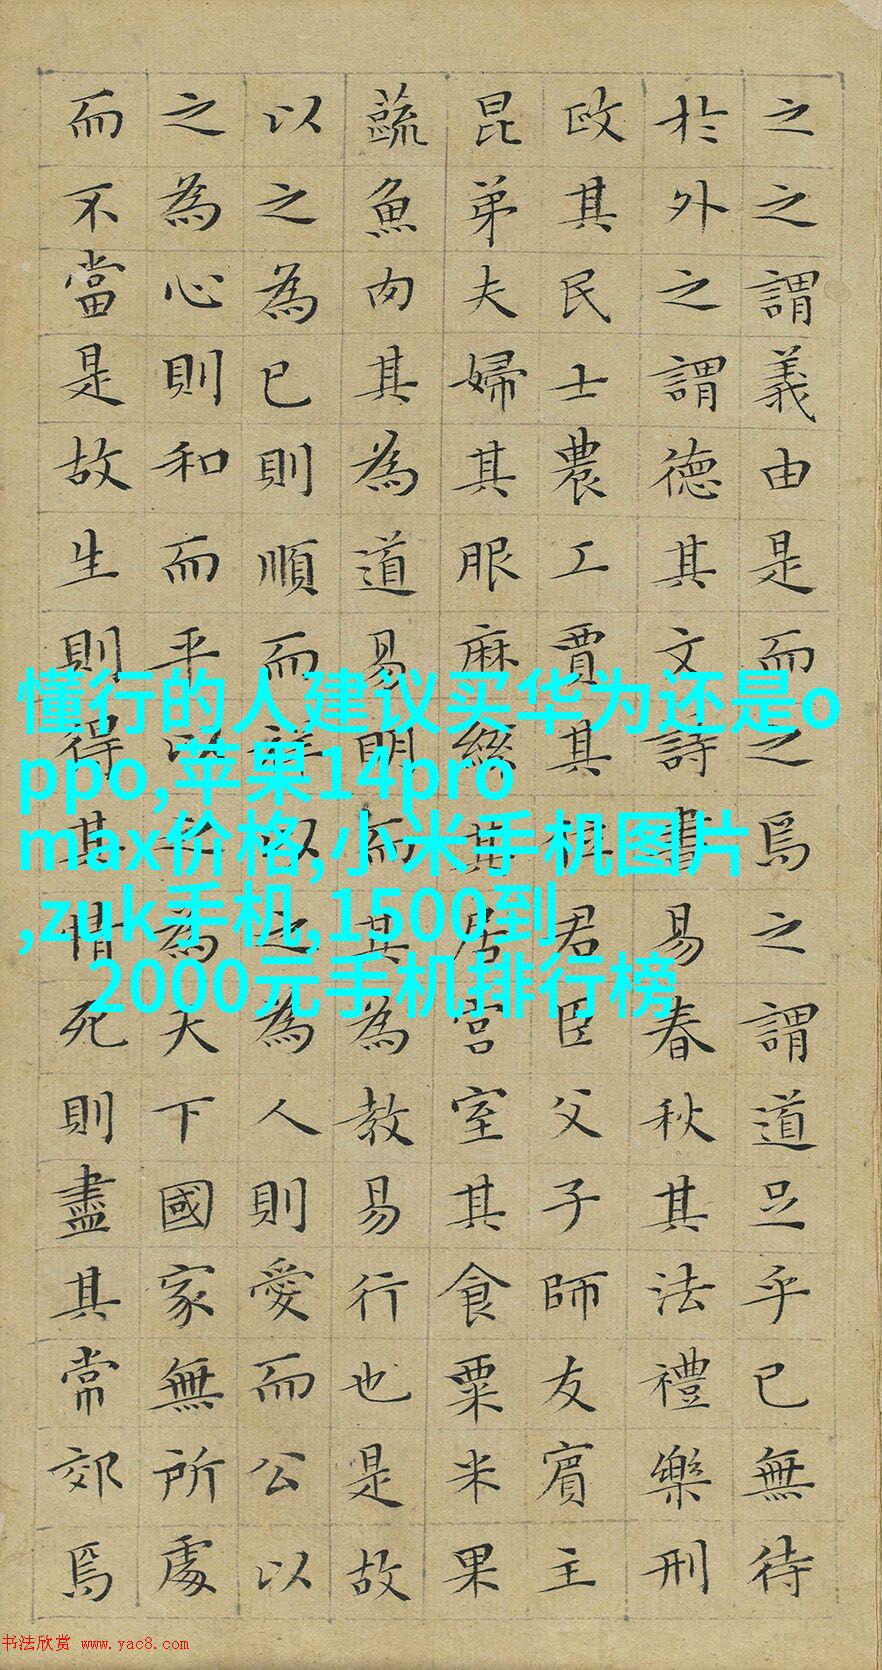 之之謂義由是而之焉之謂道足乎已無待
於外之謂德其文詩書易春秋其法禮樂刑
政其民士農工賈其位君臣父子師友賓主
昆弟夫婦其服麻絲其居宮室其食粟米果
蔬魚肉其為道易明而其為教易行也是故
以之為已則順而祥以之為人則愛而公以
之為心則和而平以之為天下國家無所處
而不當是故生則得其情死則盡其常郊焉
懂行的人建议买华为还是o
ppo,苹果14pro
max价格,小米手机图片
,zuk手机,1500到
2000元手机排行榜
书法欣赏 www.yac8.com